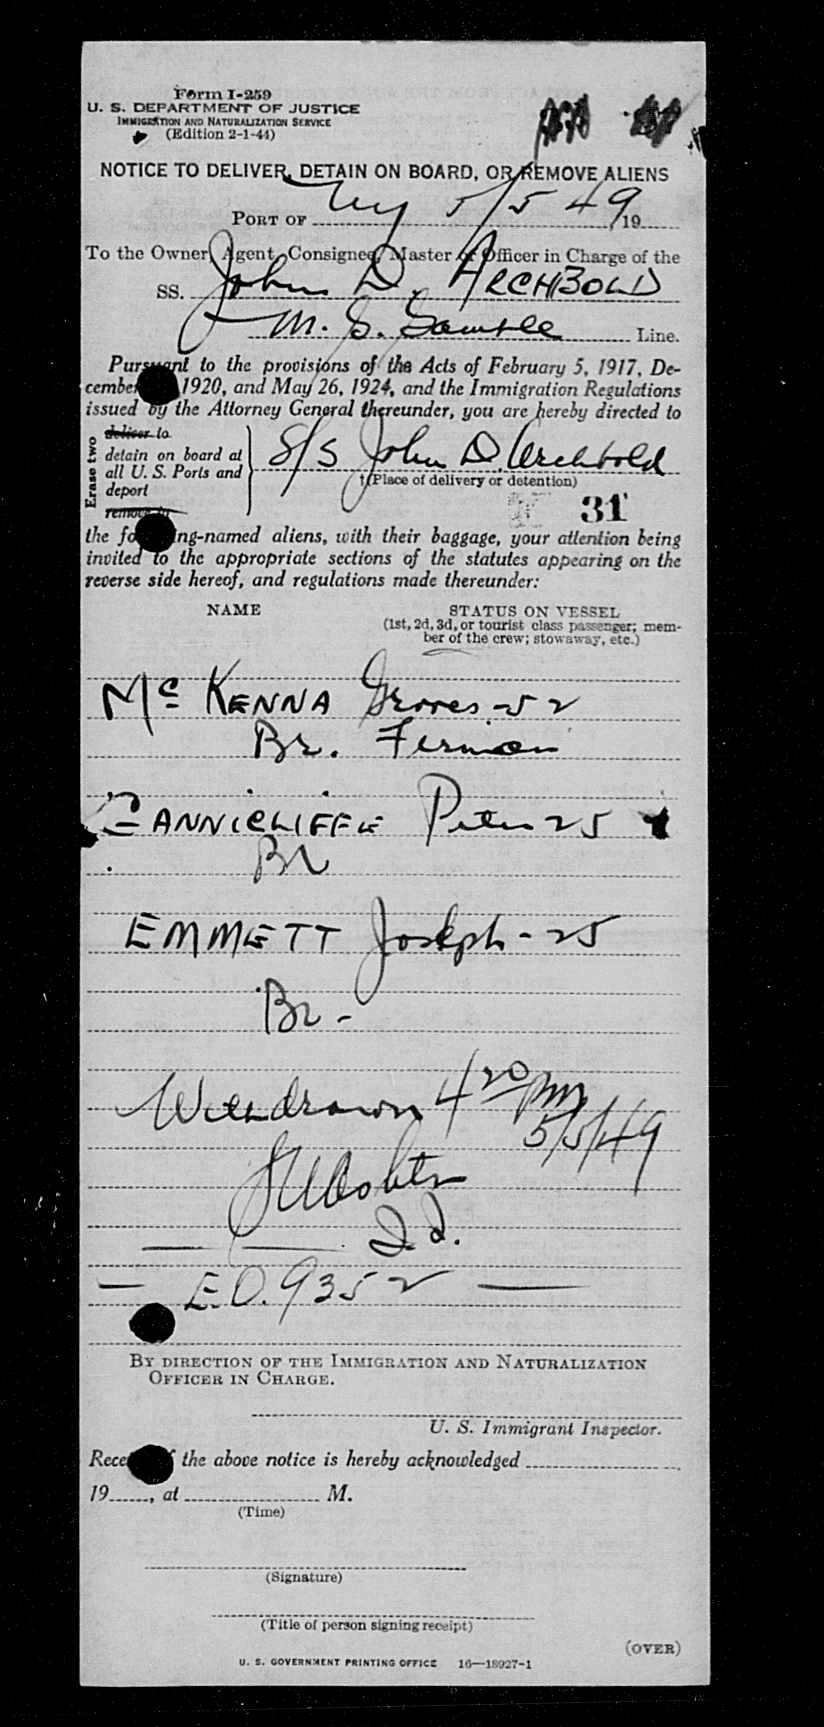 Form I-259
U. S. DEPARTMENT OF JUSTICE
IMMIGRATION AND NATURALIZATION SERVICE
(Edition 2-1-44)
NOTICE TO DELIVER, DETAIN ON BOARD, OR REMOVE ALIENS
PORT OF NY 5/5 49, 19
To the Owner, Agent, Consignee, Master or Officer in Charge of the
SS. John D. ARCHBOLD
M. S. Line.
Pursuant to the provisions of the Acts of February 5, 1917, De-
cember 1920, and May 26, 1924, and the Immigration Regulations
issued by the Attorney General thereunder, you are hereby directed to
Erase two
deliver to
detain on board at
all U. S. Ports and
deport
remove to
S/S John D. Archbold
†(Place of delivery or detention)
31
the following-named aliens, with their baggage, your attention being
invited to the appropriate sections of the statutes appearing on the
reverse side hereof, and regulations made thereunder:
NAME
STATUS ON VESSEL
(1st, 2d, 3d, or tourist class passenger; mem-
ber of the crew; stowaway, etc.)
McKENNA - 52
Br. Fireman
Peter 25
Br
EMMETT Joseph - 25
Br -
Withdrawn 4 20 pm
5/5/49
— E.O. 9352 —
BY DIRECTION OF THE IMMIGRATION AND NATURALIZATION
OFFICER IN CHARGE.
U. S. Immigrant Inspector.
Receipt of the above notice is hereby acknowledged
19, at M.
(Time)
(Signature)
(Title of person signing receipt)
(OVER)
U. S. GOVERNMENT PRINTING OFFICE 16—18927-1